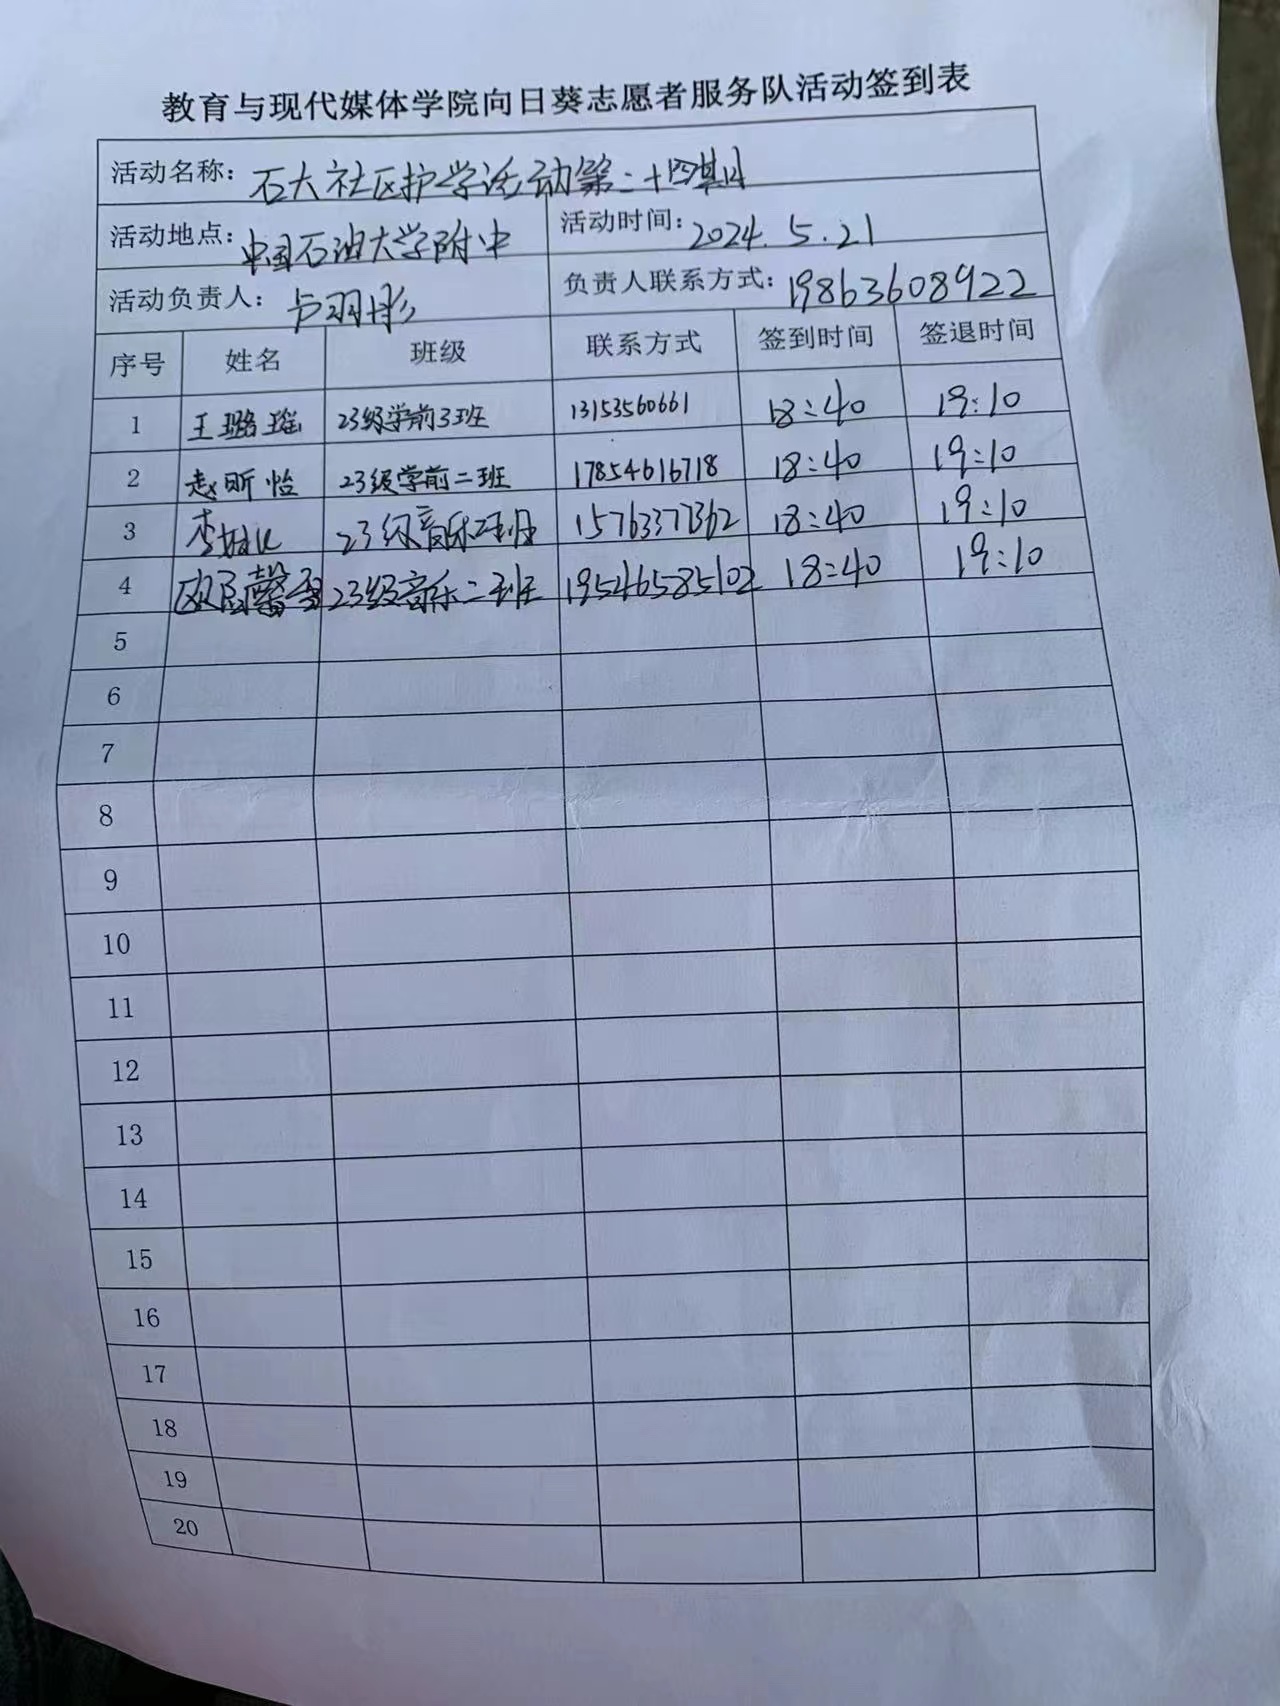 教育与现代媒体学院向日葵志愿者服务队活动签到表
活动名称: 石大社区护学活动第二十四期
活动地点: 中国石油大学附中 活动时间: 2024.5.21
活动负责人: 卢羽彤 负责人联系方式: 19863608922
序号 姓名 班级 联系方式 签到时间 签退时间
1 王璐瑶 23级学前3班 13153560661 18:40 19:10
2 赵昕怡 23级学前二班 17854616718 18:40 19:10
3 李 23级音乐班 15763377362 18:40 19:10
4 欧阳馨雪 23级音乐二班 19546585102 18:40 19:10
5
6
7
8
9
10
11
12
13
14
15
16
17
18
19
20